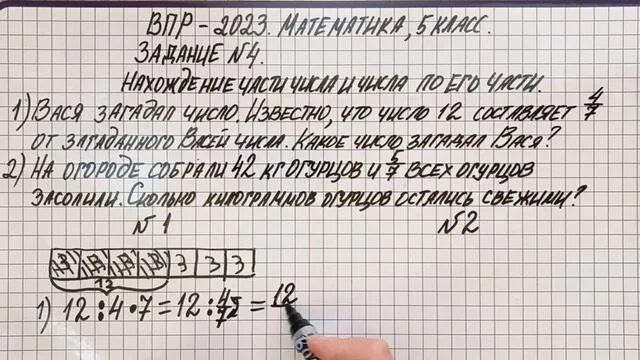 ВПР – 2023. МАТЕМАТИКА, 5 КЛАСС.
ЗАДАНИЕ №4.
НАХОЖДЕНИЕ ЧАСТИ ЧИСЛА И ЧИСЛА ПО ЕГО ЧАСТИ.
1) ВАСЯ ЗАГАДАЛ ЧИСЛО. ИЗВЕСТНО, ЧТО ЧИСЛО 12 СОСТАВЛЯЕТ 4/7
ОТ ЗАГАДАННОГО ВАСЕЙ ЧИСЛА. КАКОЕ ЧИСЛО ЗАГАДАЛ ВАСЯ?
2) НА ОГОРОДЕ СОБРАЛИ 42 КГ ОГУРЦОВ И 5/7 ВСЕХ ОГУРЦОВ
ЗАСОЛИЛИ. СКОЛЬКО КИЛОГРАММОВ ОГУРЦОВ ОСТАЛИСЬ СВЕЖИМИ?
№1 №2
3 3 3
12
1) 12 : 4 · 7 = 12 : 4/7 = 12